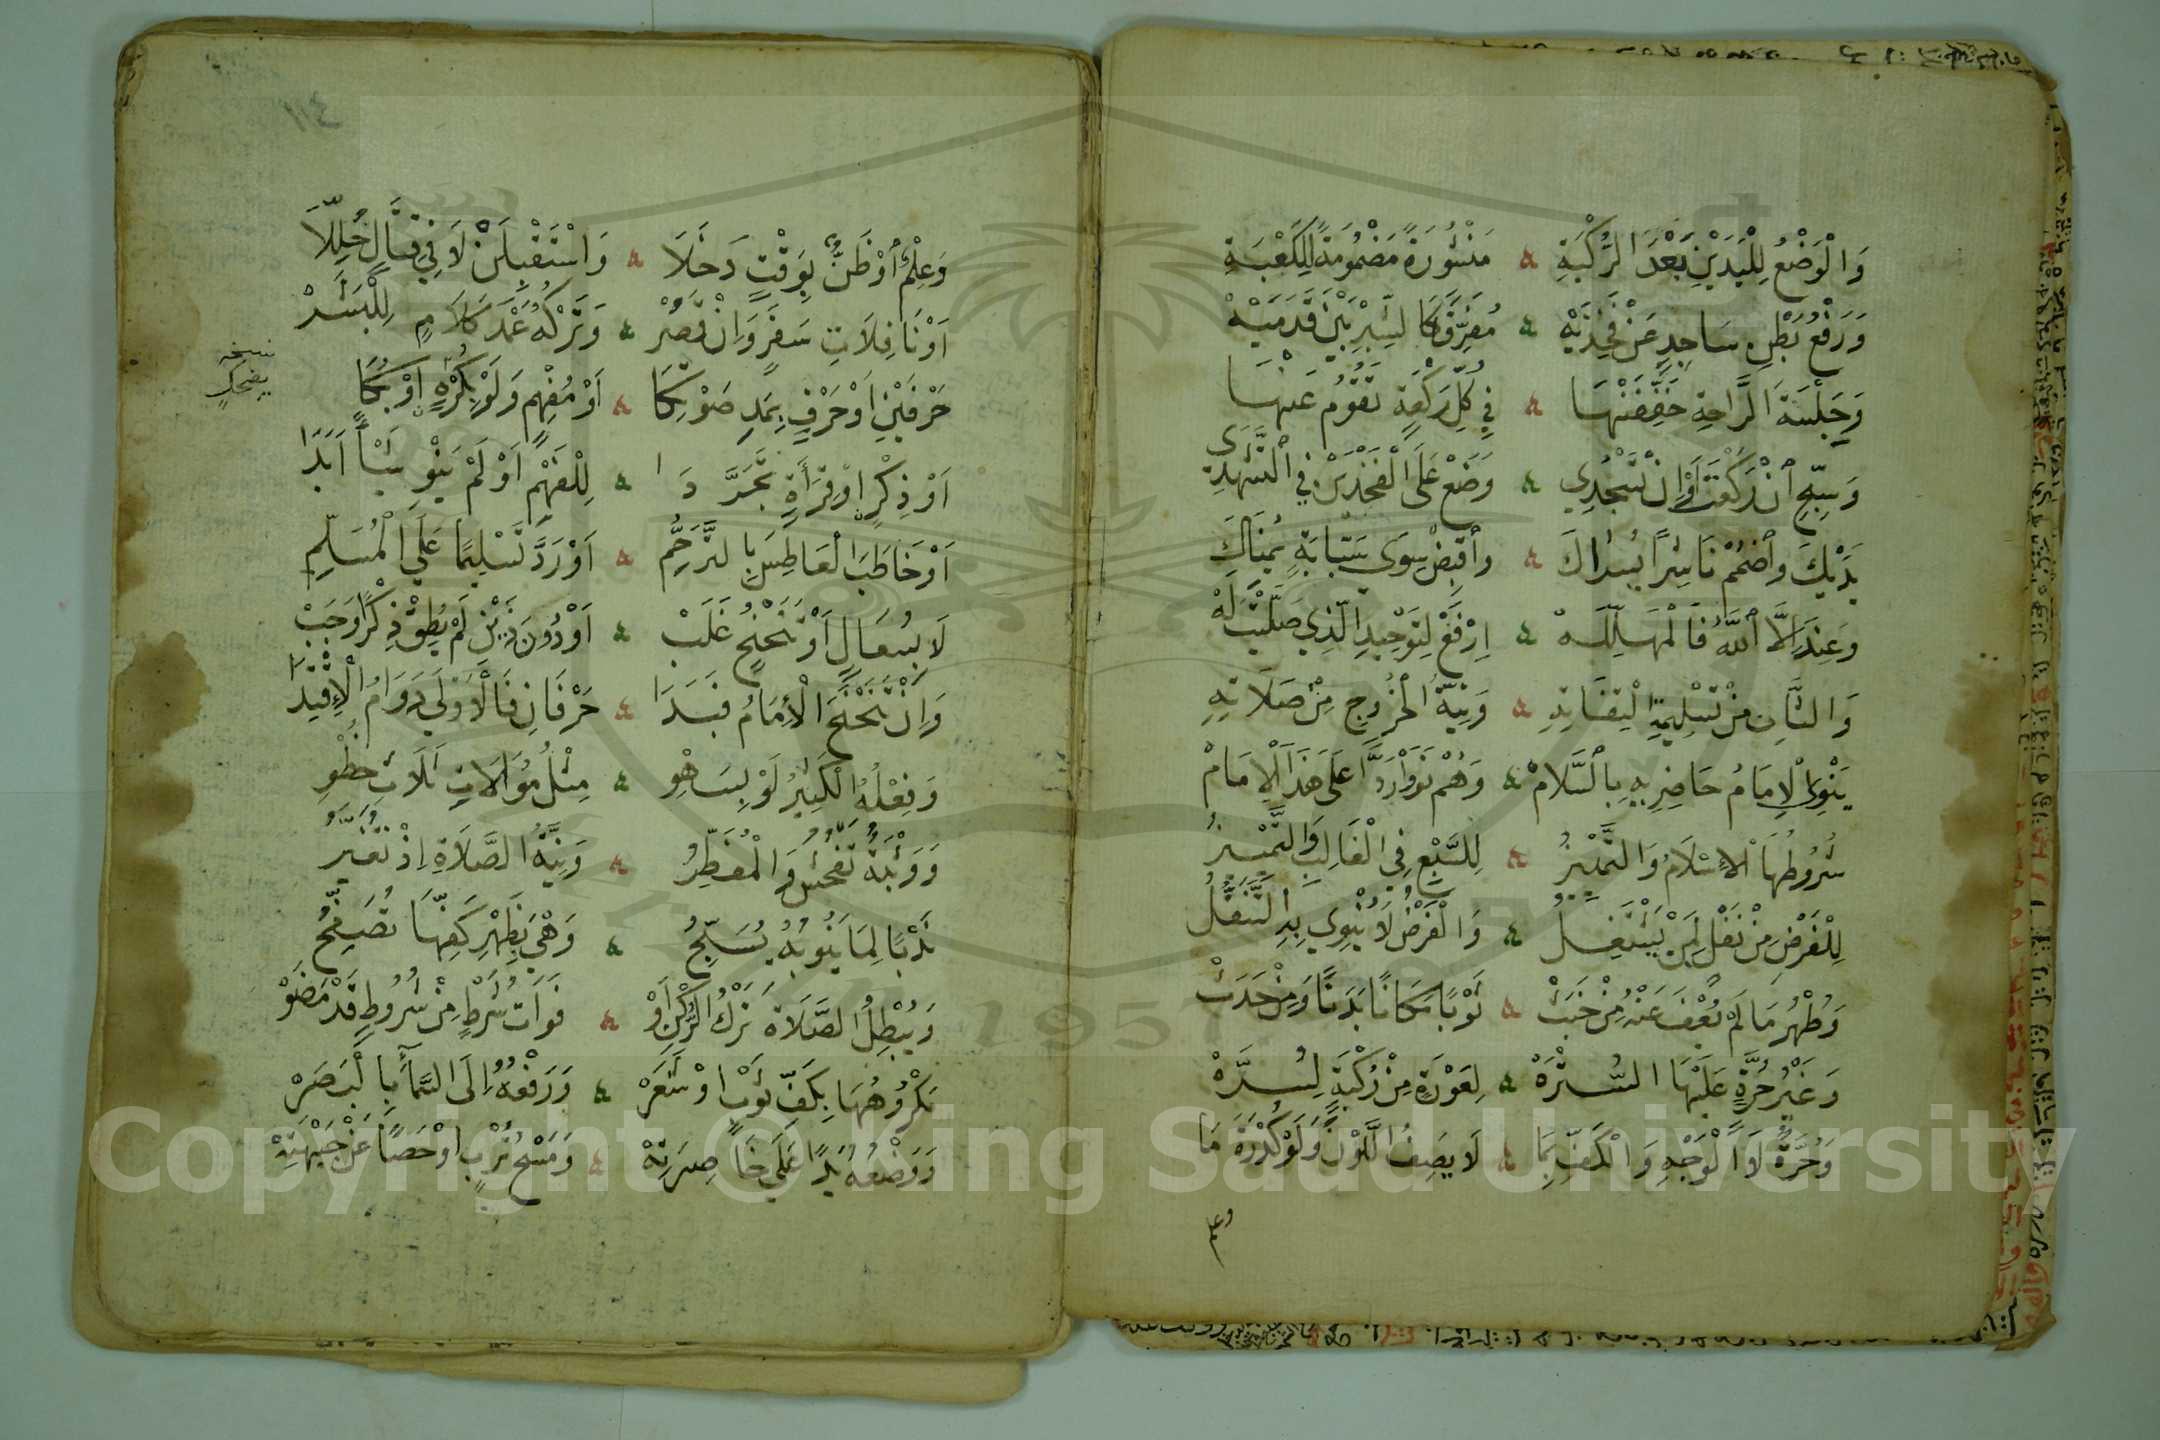 وَالْوَضْعُ لِلْيَدَيْنِ بَعْدَ الرُّكْبَةِ ۞ مَنْشُورَةً مَضْمُومَةً لِلْكَعْبَةِ
وَرَفْعُ بَطْنِ سَاجِدٍ عَنْ فَخِذَيْهْ ۞ مُفَرِّقًا كَالشِّبْرِ بَيْنَ قَدَمَيْهْ
وَجَلْسَةَ الرَّاحَةِ خَفِّفَنْهَا ۞ فِي كُلِّ رَكْعَةٍ تَقُومُ عَنْهَا
وَسَبِّحِ ٱنْ رَكَعْتَ أَوْ إِنْ تَسْجُدِي ۞ وَضَعْ عَلَى الْفَخْذَيْنِ فِي ٱلتَّشَهُّدِي
يَدَيْكَ وٱضْمُمْ نَاشِرًا يُسْرَاكَ ۞ وٱقْبِضْ سِوَى سَبَّابَةٍ يُمْنَاكَ
وَعِنْدَ إِلَّا ٱللَّهُ فَالْمُهَلِّلَهْ ۞ اِرْفَعْ لِتَوْحِيدِ الَّذِي صَلَّيْتَ لَهْ
وَالثَّانِ مِنْ تَسْلِيمَةِ الْتِفَاتِهِ ۞ وَنِيَّةُ الْخُرُوجِ مِنْ صَلَاتِهِ
يَنْوِي الْإِمَامُ حَاضِرِيهِ بِالسَّلَامْ ۞ وَهُمْ نَوَوْا رَدًّا عَلَى هَذَا الْإِمَامْ
شُرُوطُهَا الْإِسْلَامُ وَالتَّمْيِيزُ ۞ لِلسَّبْعِ فِي الْغَالِبِ وَالتَّمْيِيزُ
لِلْفَرْضِ مِنْ نَفْلٍ لِمَنْ يَشْتَغِلُ ۞ وَالْفَرْضُ لَا يُنْوِي بِهِ التَّنَفُّلُ
وَطُهْرُ مَا لَمْ يُعْفَ عَنْهُ مِنْ خَبَثْ ۞ ثَوْبًا مَكَانًا بَدَنًا وَمِنْ حَدَثْ
وَغَيْرُ حُرَّةٍ عَلَيْهَا السُّتْرَهْ ۞ لِعَوْرَةٍ مِنْ رُكْبَةٍ لِسُرَّهْ
وَحُرَّةٌ لَا الْوَجْهِ وَالْكَفِّ بِمَا ۞ لَا يَصِفُ اللَّوْنَ وَلَوْ كُدْرَةَ مَا
وعلم
وَعِلْمٌ أَوْ ظَنٌّ بِوَقْتٍ دَخَلَا ۞ وَاسْتَقْبِلَنْ لَا فِي قِتَالٍ حُلِّلَا
اَوْ نَافِلَاتِ سَفَرٍ وَإِنْ قَصُرْ ۞ وَتَرْكُهُ عَمْدَ كَلَامٍ لِلْبَشَرْ
حَرْفَيْنِ اوْ حَرْفٍ بِمَدِ صَوْتِكَا ۞ اَوْ مُفْهِمٍ وَلَوْ بِكُرْهٍ اوْ بُكَا
نسخه
بضحك
اَوْ ذِكْرٍ اوْ قِرَأَةٍ تَجَرَّدَا ۞ لِلْفَهْمِ اَوْ لَمْ يَنْوِ شَيْأً اَبَدَا
اَوْ خَاطَبَ الْعَاطِسَ بِالتَّرَحُّمِ ۞ اَوْ رَدَّ تَسْلِيمًا عَلَى الْمُسَلِّمِ
لَا بِسُعَالٍ اَوْ تَنَحْنُحٍ غَلَبْ ۞ اَوْ دُونَ ذَيْنِ لَمْ يُطِقْ ذِكْرًا وَجَبْ
وَاِنْ تَنَحْنَحَ الْأِمَامُ فَبَدَا ۞ حَرْفَانِ فَالْأَوْلَى دَوَامُ الْإِقْتِدَا
وَفِعْلُهُ الْكَثِيرُ لَوْ بِسَهْوِ ۞ مِثْلُ مُوَالَاتِ ثَلَاثِ خَطْوِ
وَوَثْبَةٌ تَفْحُشُ وَالْمُفَطِّرُ ۞ وَنِيَّةُ الصَّلَاةِ اِذْ تُغَيَّرُ
نَدْبًا لِمَا يَنُوبُهُ يُسَبِّحُ ۞ وَهْيَ بِظَهْرِ كَفِّهَا تُصَفِّحُ
وَيُبْطِلُ الصَّلَاةَ تَرْكُ الرُّكْنِ أَوْ ۞ فَوَاتُ شَرْطٍ مِنْ شُرُوطٍ قَدْ مَضَوْ
مَكْرُوهُهَا بِكَفِّ ثَوْبٍ اوْ شَعَرْ ۞ وَرَفْعُهُ اِلَى السَّمَآءِ بِالْبَصَرْ
وَوَضْعُهُ يَدًا عَلَى خَاصِرَتِهْ ۞ وَمَسْحُ تُرْبٍ اوْ حَصًا عَنْ جَبْهَتِهْ
Copyright © King Saud University
1957